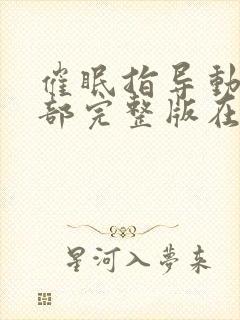 催眠指导動
部完整版在
星河入夢来